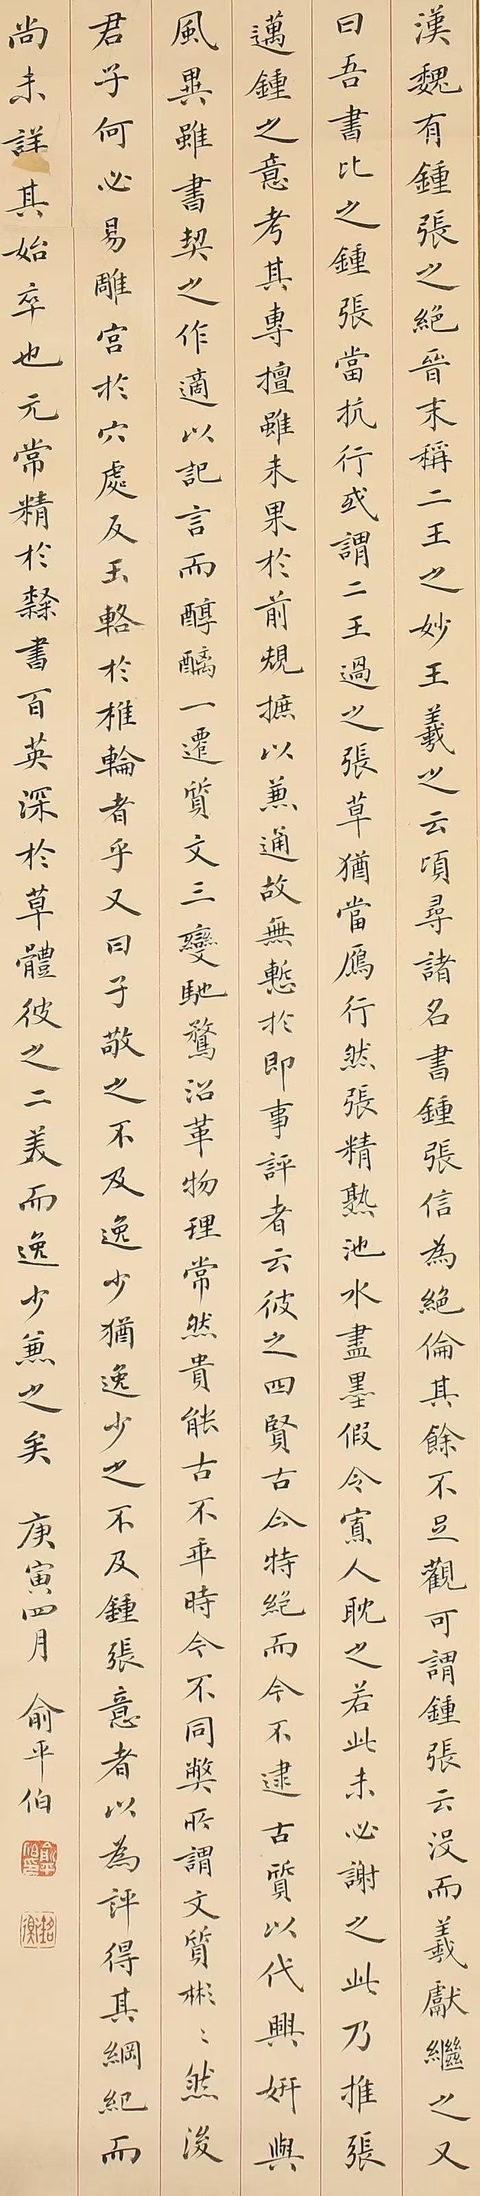 漢魏有鍾張之絕晉末稱二王之妙王羲之云頃尋諸名書鍾張信為絕倫其餘不足觀可謂鍾張云沒而羲獻繼之又
曰吾書比之鍾張當抗行或謂二王過之張草猶當鴈行然張精熟池水盡墨假令寡人耽之若此未必謝之此乃推張
邁鍾之意考其專擅雖未果於前規摭以兼通故無慙於即事評者云彼之四賢古今特絕而今不逮古質以代興妍與
風異雖書契之作適以記言而醇醨一遷質文三變馳騖沿革物理常然貴能古不乖時今不同弊所謂文質彬〻然後
君子何必易雕宮於穴處反玉輅於椎輪者乎又曰子敬之不及逸少猶逸少之不及鍾張意者以為評得其綱紀而
尚未詳其始卒也元常精於隸書百英深於草體彼之二美而逸少兼之矣 庚寅四月 俞平伯
俞平伯印
銘衡